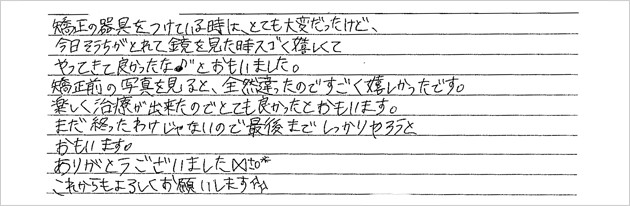 矯正の器具をつけている時は、とても大変だったけど、
今日そうちがとれて鏡を見た時スゴく嬉しくて
やってきて良かったな♪゛とおもいました。
矯正前の写真を見ると、全然違ったのですごく嬉しかったです。
楽しく治療が出来たのでとても良かったとおもいます。
まだ終ったわけじゃないので最後までしっかりやろうと
おもいます。
ありがとうございました
これからもよろしくお願いします